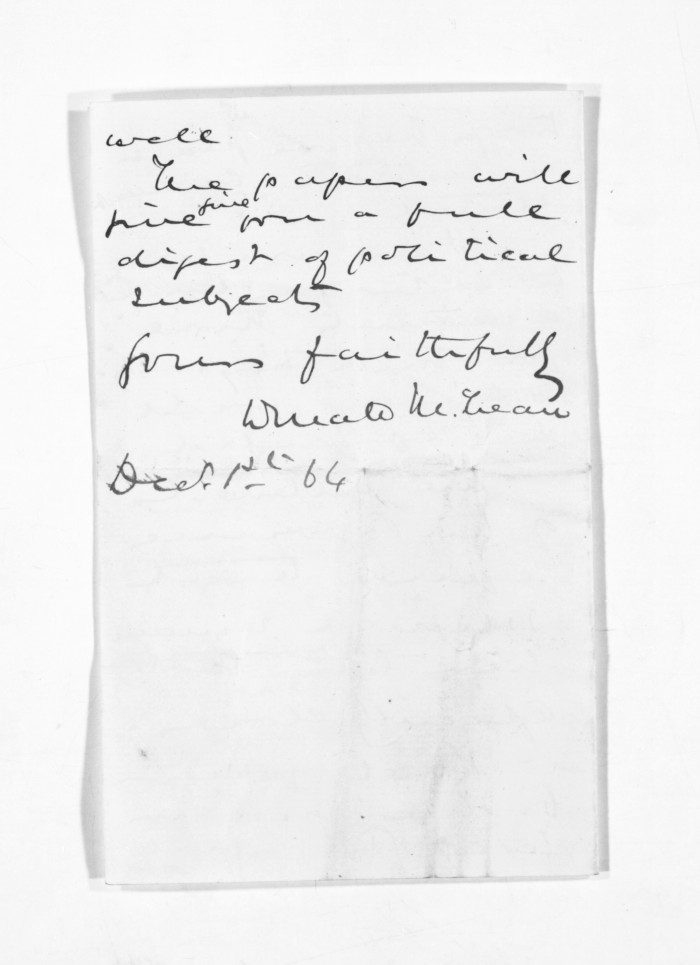 well.
The papers will
give give you a full
digest of political
subjects
Yours faithfully
Donald McLean
Dec. 1st 64